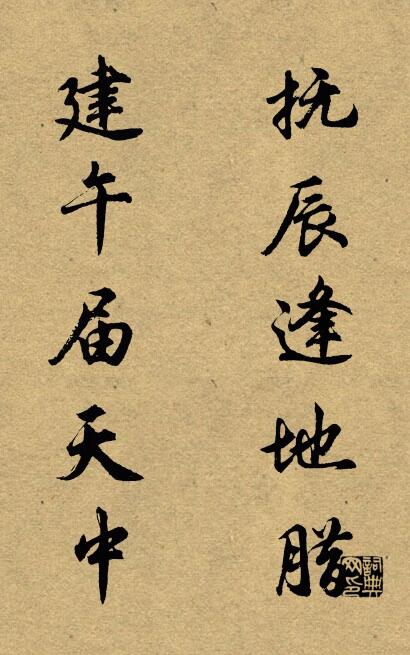 抚辰逢地腊
建午届天中
詞典网印